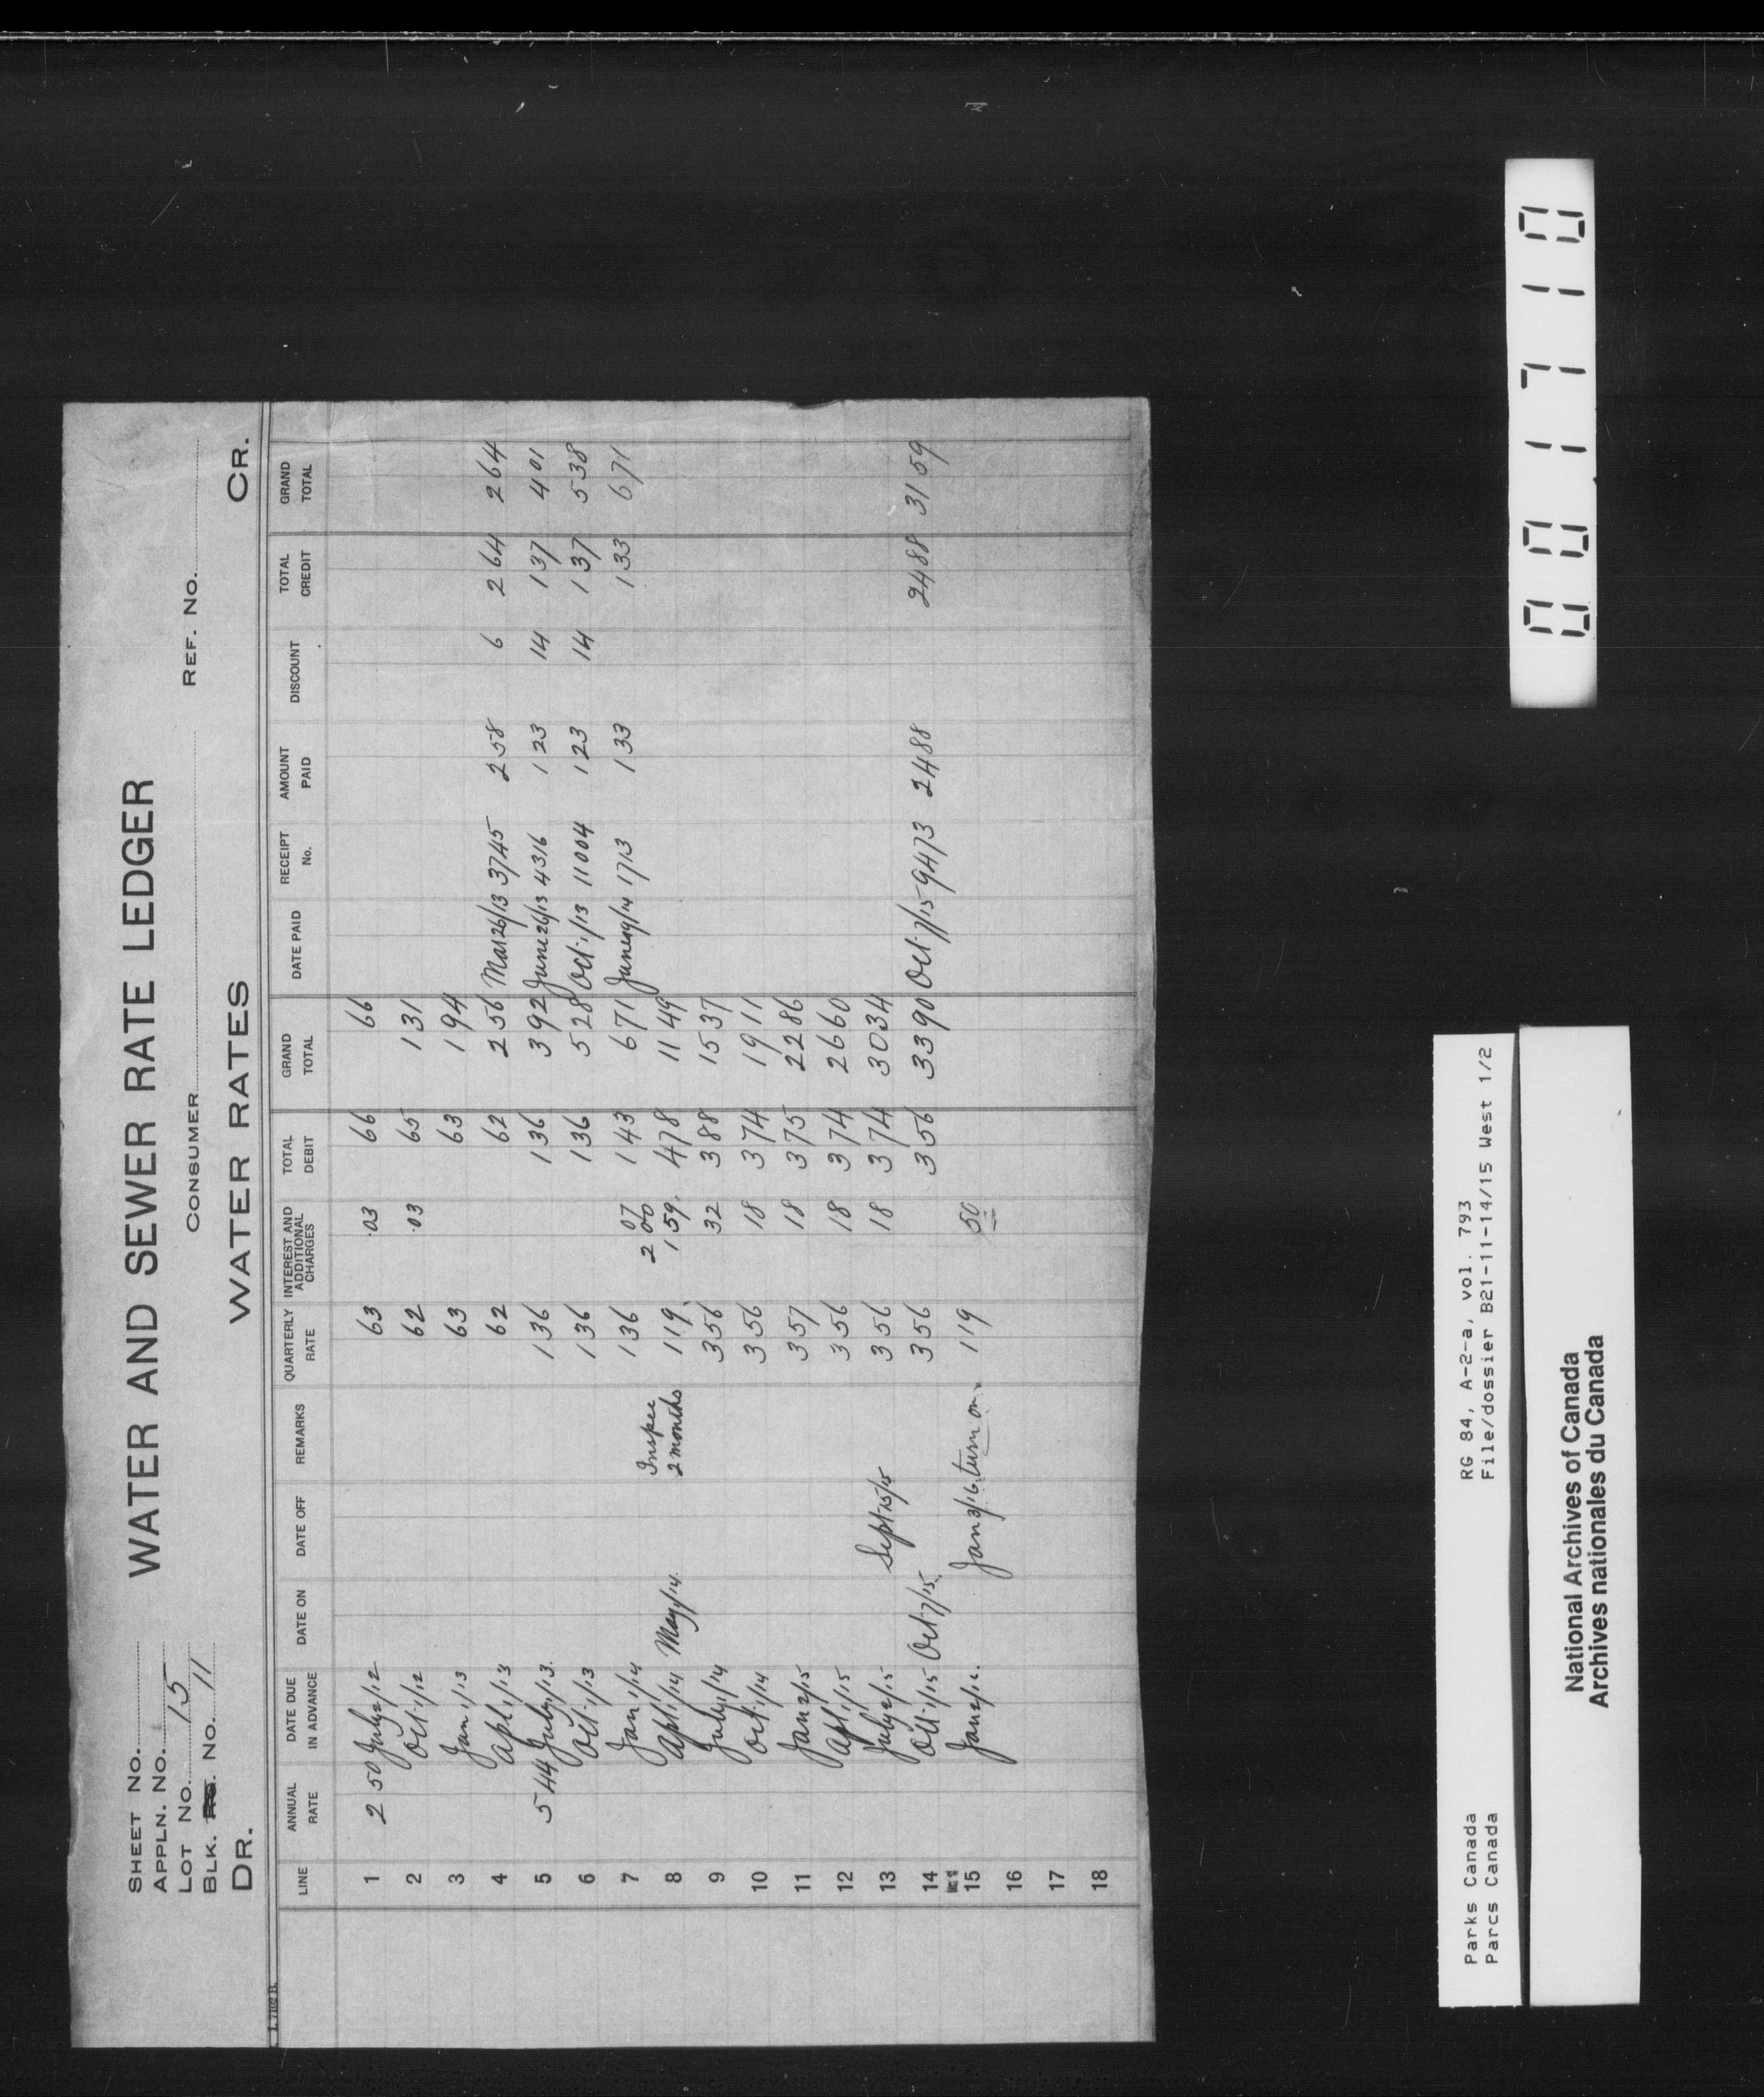 SHEET No.
APPLN. No.
LOT No. 15
BLK. No. 11
WATER AND SEWER RATE LEDGER
CONSUMER
REF. No.
DR. WATER RATES CR.
L 7102 B.
LINE ANNUAL RATE DATE DUE IN ADVANCE DATE ON DATE OFF REMARKS QUARTERLY RATE INTEREST AND ADDITIONAL CHARGES TOTAL DEBIT GRAND TOTAL DATE PAID RECEIPT No. AMOUNT PAID DISCOUNT TOTAL CREDIT GRAND TOTAL
1 2 50 July 2/12 63 .03 66 66
2 Oct. 1/12 62 .03 65 1 31
3 Jan 1/13 63 63 1 94
4 Apl 1/13 62 62 2 56 Mar 26/13 3745 2 58 6 2 64 2 64
5 5 44 July 1/13 1 36 1 36 3 92 June 26/13 4316 1 23 14 1 37 4 01
6 Oct. 1/13 1 36 1 36 5 28 Oct. 1/13 11004 1 23 14 1 37 5 38
7 Jan 1/14 1 36 07 1 43 6 71 June 19/14 1713 1 33 1 33 6 71
Inspec 2 00
8 Apl 1/14 May 1/14 2 months 1 19 1 59 4 78 11 49
9 July 1/14 3 56 32 3 88 15 37
10 Oct. 1/14 3 56 18 3 74 19 11
11 Jan 2/15 3 57 18 3 75 22 86
12 Apl 1/15 3 56 18 3 74 26 60
13 July 2/15 Sept 15/15 3 56 18 3 74 30 34
14 Oct. 1/15 Oct. 7/15 3 56 3 56 33 90 Oct. 7/15 9473 24 88 24 88 31 59
15 Jan 2/16 Jan 3/16 turn on 1 19 50
16
17
18
Parks Canada RG 84, A-2-a, vol. 793
Parcs Canada File/dossier B21-11-14/15 West 1/2
National Archives of Canada
Archives nationales du Canada
001710